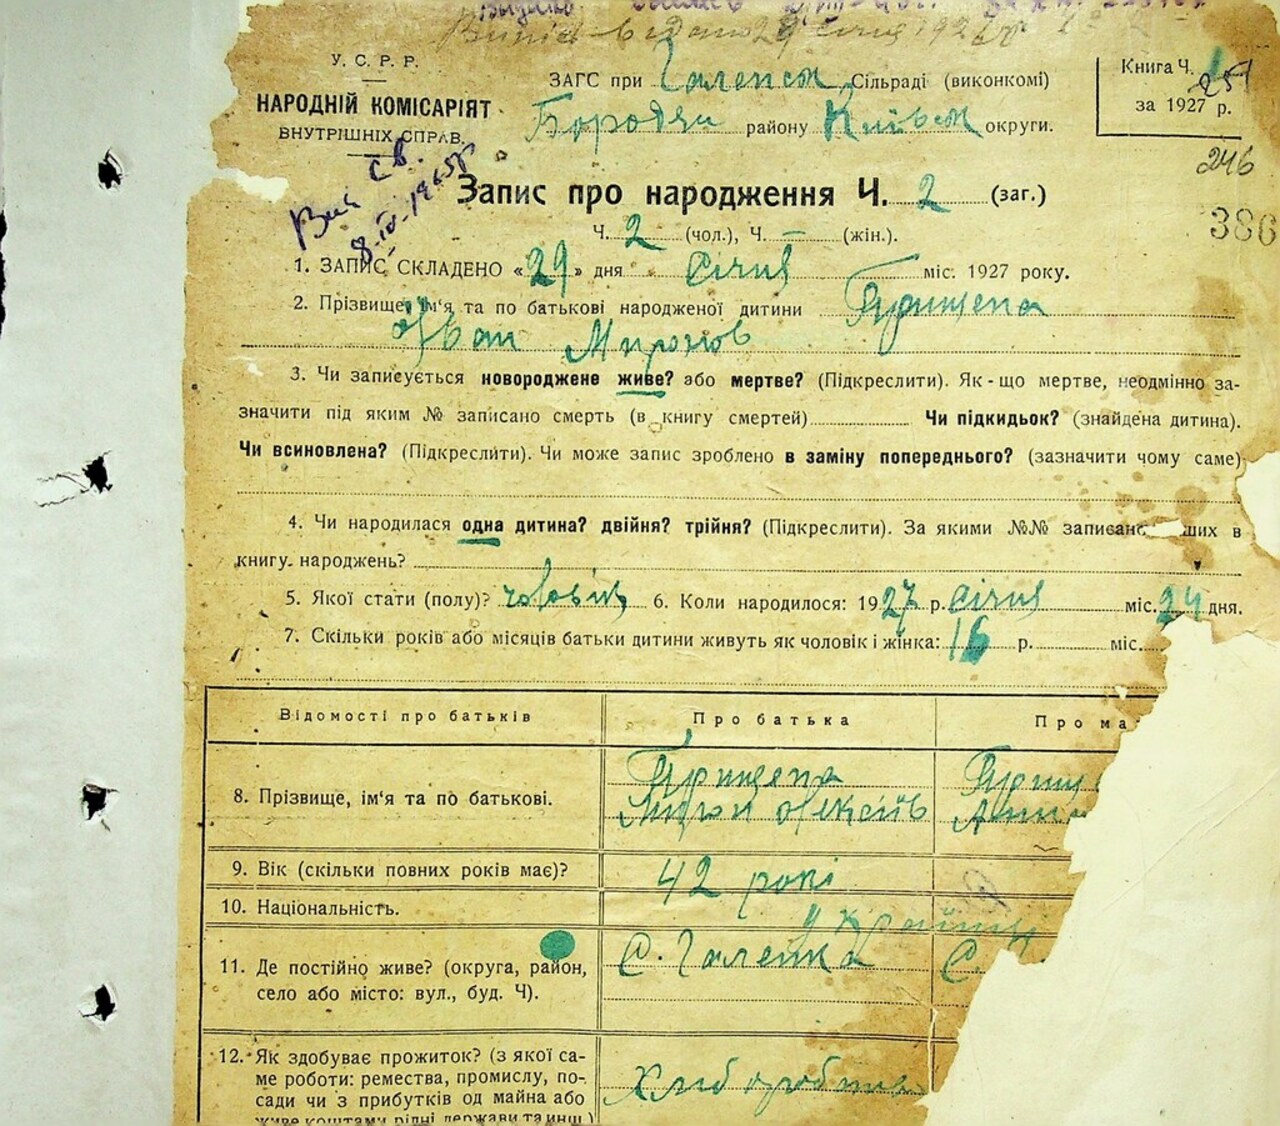 У. С. Р. Р.
НАРОДНІЙ КОМІСАРІЯТ
ВНУТРІШНІХ СПРАВ.
ЗАГС при Галенськ. Сільраді (виконкомі)
Бородян району Київськ округи.
Книга Ч. 1
за 1927 р.
251
246
386
Запис про народження Ч. 2 (заг.)
Ч. 2 (чол.), Ч. – (жін.).
1. ЗАПИС СКЛАДЕНО «29» дня січня міс. 1927 року.
2. Прізвище, ім‘я та по батькові народженої дитини Прищепа
Іван Миронов
3. Чи записується новороджене живе? або мертве? (Підкреслити). Як-що мертве, неодмінно за-
значити під яким № записано смерть (в книгу смертей) Чи підкидьок? (знайдена дитина).
Чи всиновлена? (Підкреслити). Чи може запис зроблено в заміну попереднього? (зазначити чому саме)
4. Чи народилася одна дитина? двійня? трійня? (Підкреслити). За якими №№ записано ших в
книгу народжень?
5. Якої стати (полу)? чоловіч 6. Коли народилось: 1927 р. січня міс. 24 дня.
7. Скільки років або місяців батьки дитини живуть як чоловік і жінка: 16 р. міс.
Відомості про батьків Про батька Про ма
8. Прізвище, ім‘я та по батькові. Прищепа Прищ
Мирон Олексіїв Анн
9. Вік (скільки повних років має)? 42 рокі
10. Національність. Українці
11. Де постійно живе? (округа, район, с. Галенка с.
село або місто: вул., буд. Ч).
12. Як здобуває прожиток? (з якої са-
ме роботи: ремества, промислу, по- Хліборобство
сади чи з прибутків од майна або
живе коштами рідні держави та инш.)